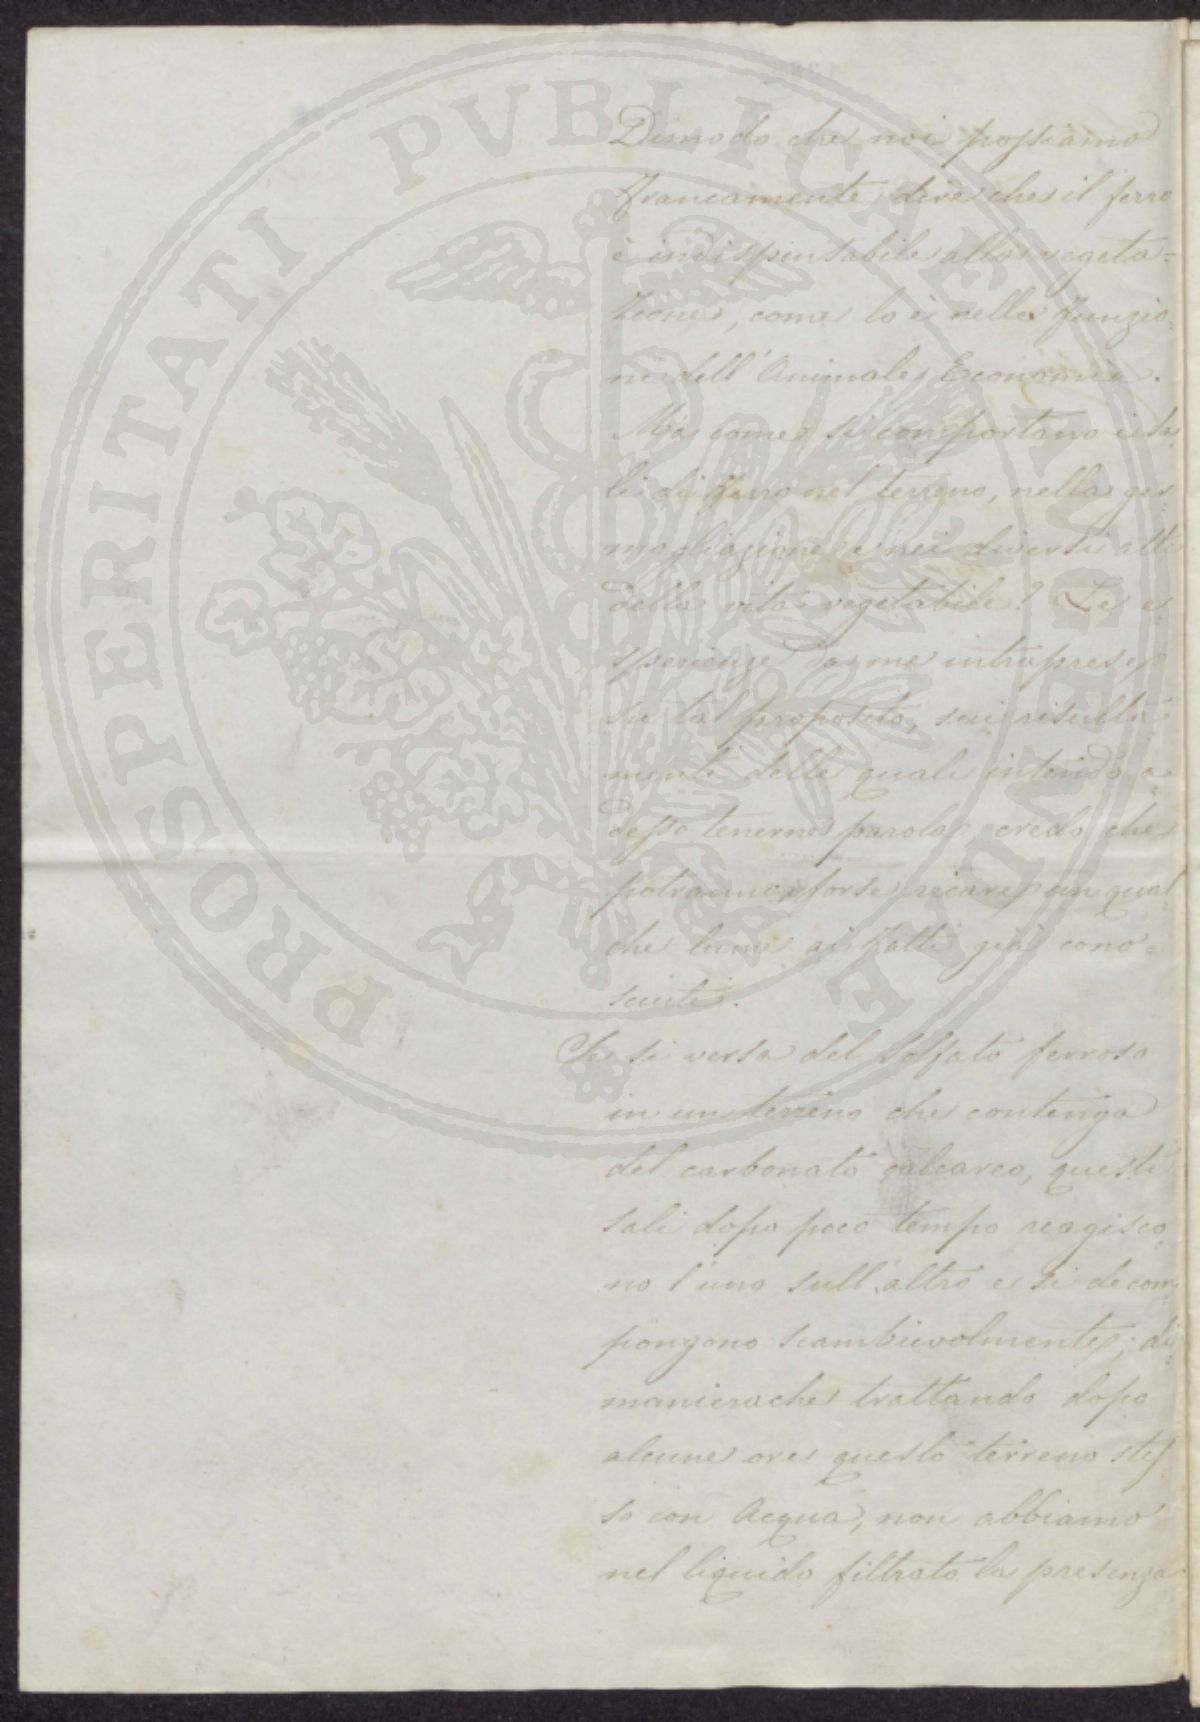 Dimodo che noi possiamo
francamente dire che il ferro
è indispensabile alla vegeta-
zione, come lo è nella funzio-
ne dell'Animale Economia.
Ma come si comportano i sa-
li di ferro nel terreno, nella ger-
mogliazione e nei diversi atti
della vita vegetabile? Le e-
sperienze da me intraprese
su tal proposito, sui risulta-
menti delle quali intendo a-
desso tenerne parola, credo che
potranno forse recare un qual
che lume ai fatti già cono-
sciuti.
Se si versa del solfato ferroso
in un terreno che contenga
del carbonato calcareo, questi
sali dopo poco tempo reagisco-
no l'uno sull'altro e si decom-
pongono scambievolmente; di
manierache trattando dopo
alcune ore questo terreno stes
so con Acqua, non abbiamo
nel liquido filtrato la presenza
PROSPERITATI PVBLICAE AVGENDAE